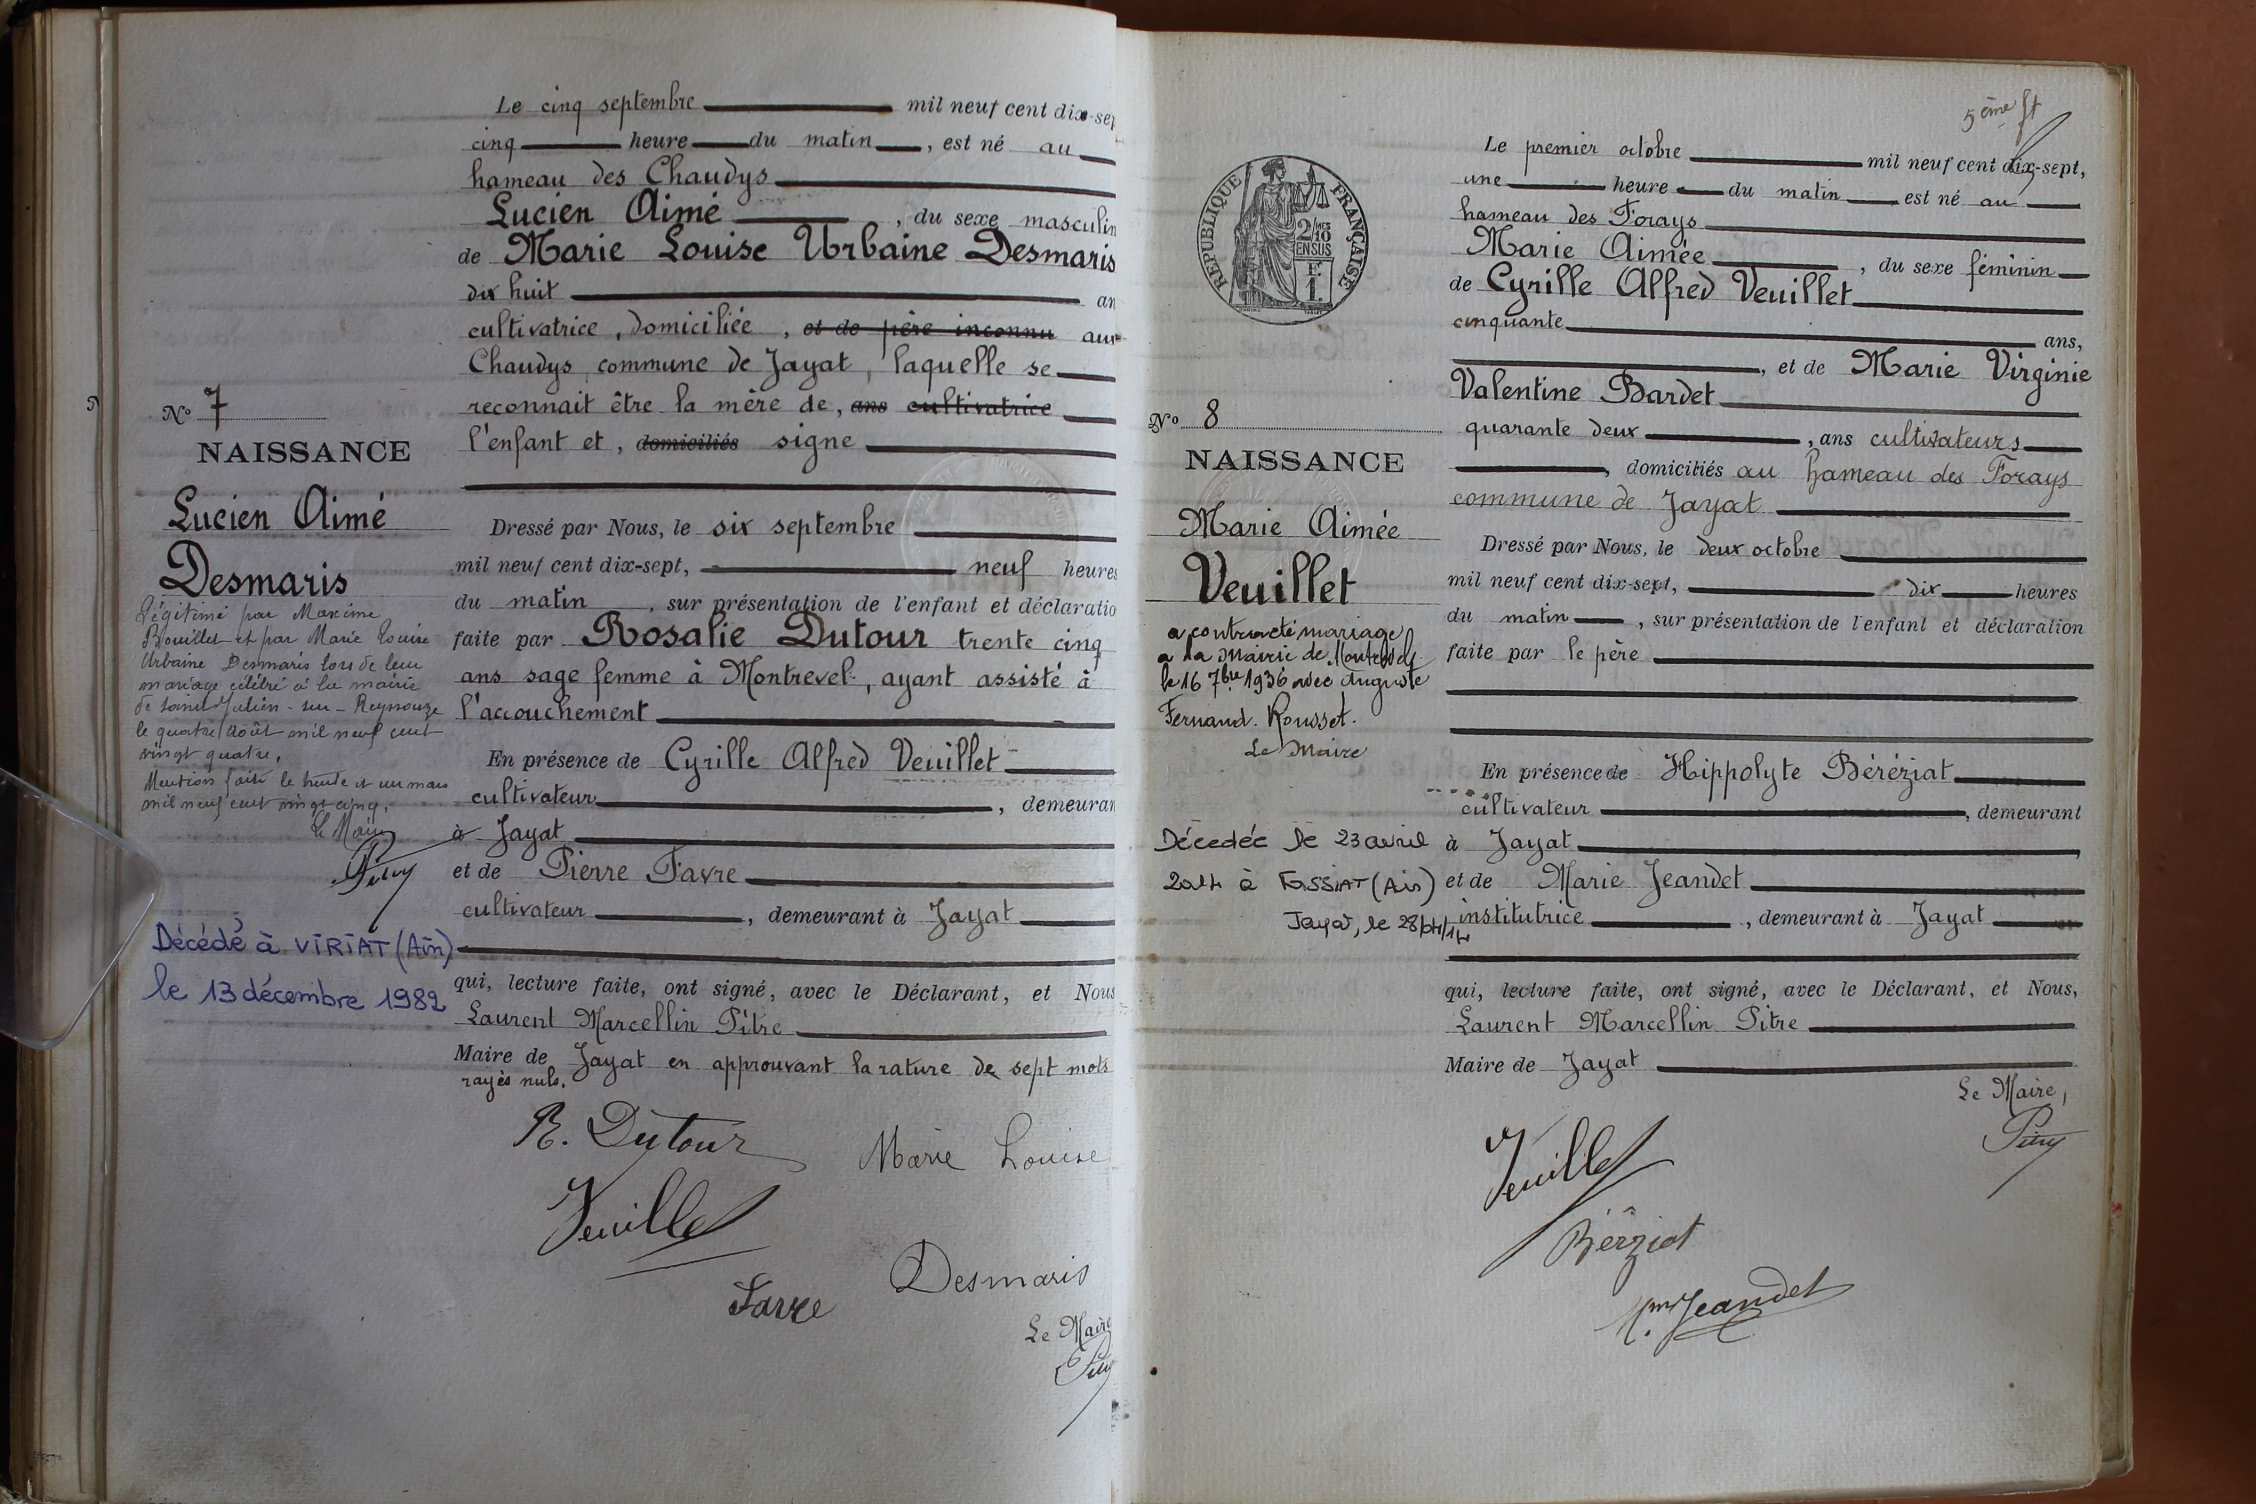 Le cinq septembre mil neuf cent dix-sep
cinq heure du matin, est né au
hameau des Chaudys
Lucien Aimé, du sexe masculin
de Marie Louise Urbaine Desmaris
dix huit an
cultivatrice, domiciliée, et de père inconnu aux
Chaudys commune de Jayat, laquelle se
reconnait être la mère de, ans cultivatrice
l'enfant et, domiciliés signe
Dressé par Nous, le six septembre
mil neuf cent dix-sept, neuf heures
du matin, sur présentation de l'enfant et déclaratio
faite par Rosalie Dutour trente cinq
ans sage femme à Montrevel, ayant assisté à
l'accouchement
En présence de Cyrille Alfred Veuillet
cultivateur, demeuran
à Jayat
et de Pierre Favre
cultivateur, demeurant à Jayat
qui, lecture faite, ont signé, avec le Déclarant, et Nous
Laurent Marcellin Pitre
Maire de Jayat en approuvant la rature de sept mots
rayés nuls.
R. Dutour
Marie Louise
Veuillet
Desmaris
Favre
Le Maire
Nº 7
NAISSANCE
Lucien Aimé
Desmaris
Légitimé par Maxime
Bouillet et par Marie Louise
Urbaine Desmaris lors de leur
mariage célébré à la mairie
de Saint Julien-sur-Reyssouze
le quatre Août mil neuf cent
vingt quatre.
Mention faite le trente et un mars
mil neuf cent vingt cinq.
Le Maire
Décédé à VIRIAT (Ain)
le 13 décembre 1982
5ème ft
Le premier octobre mil neuf cent dix-sept,
une heure du matin est né au
hameau des Forays
Marie Aimée, du sexe féminin
de Cyrille Alfred Veuillet
cinquante ans,
, et de Marie Virginie
Valentine Bardet
quarante deux, ans cultivateurs
, domiciliés au hameau des Forays
commune de Jayat
Dressé par Nous, le deux octobre
mil neuf cent dix-sept, dix heures
du matin, sur présentation de l'enfant et déclaration
faite par le père
En présence de Hippolyte Béréziat
cultivateur, demeurant
à Jayat
et de Marie Jeandet
institutrice, demeurant à Jayat
qui, lecture faite, ont signé, avec le Déclarant, et Nous,
Laurent Marcellin Pitre
Maire de Jayat
Le Maire,
Veuillet
Béréziat
Jeandet
RÉPUBLIQUE FRANÇAISE
2/10
EN SUS
Fr
1.
Nº 8
NAISSANCE
Marie Aimée
Veuillet
a contracté mariage
a la Mairie de Montrevel
le 16 7bre 1936 avec Auguste
Fernand Rousset.
Le Maire
Décédée le 23 avril
2014 à (Ain)
Jayat, le 28/04/14